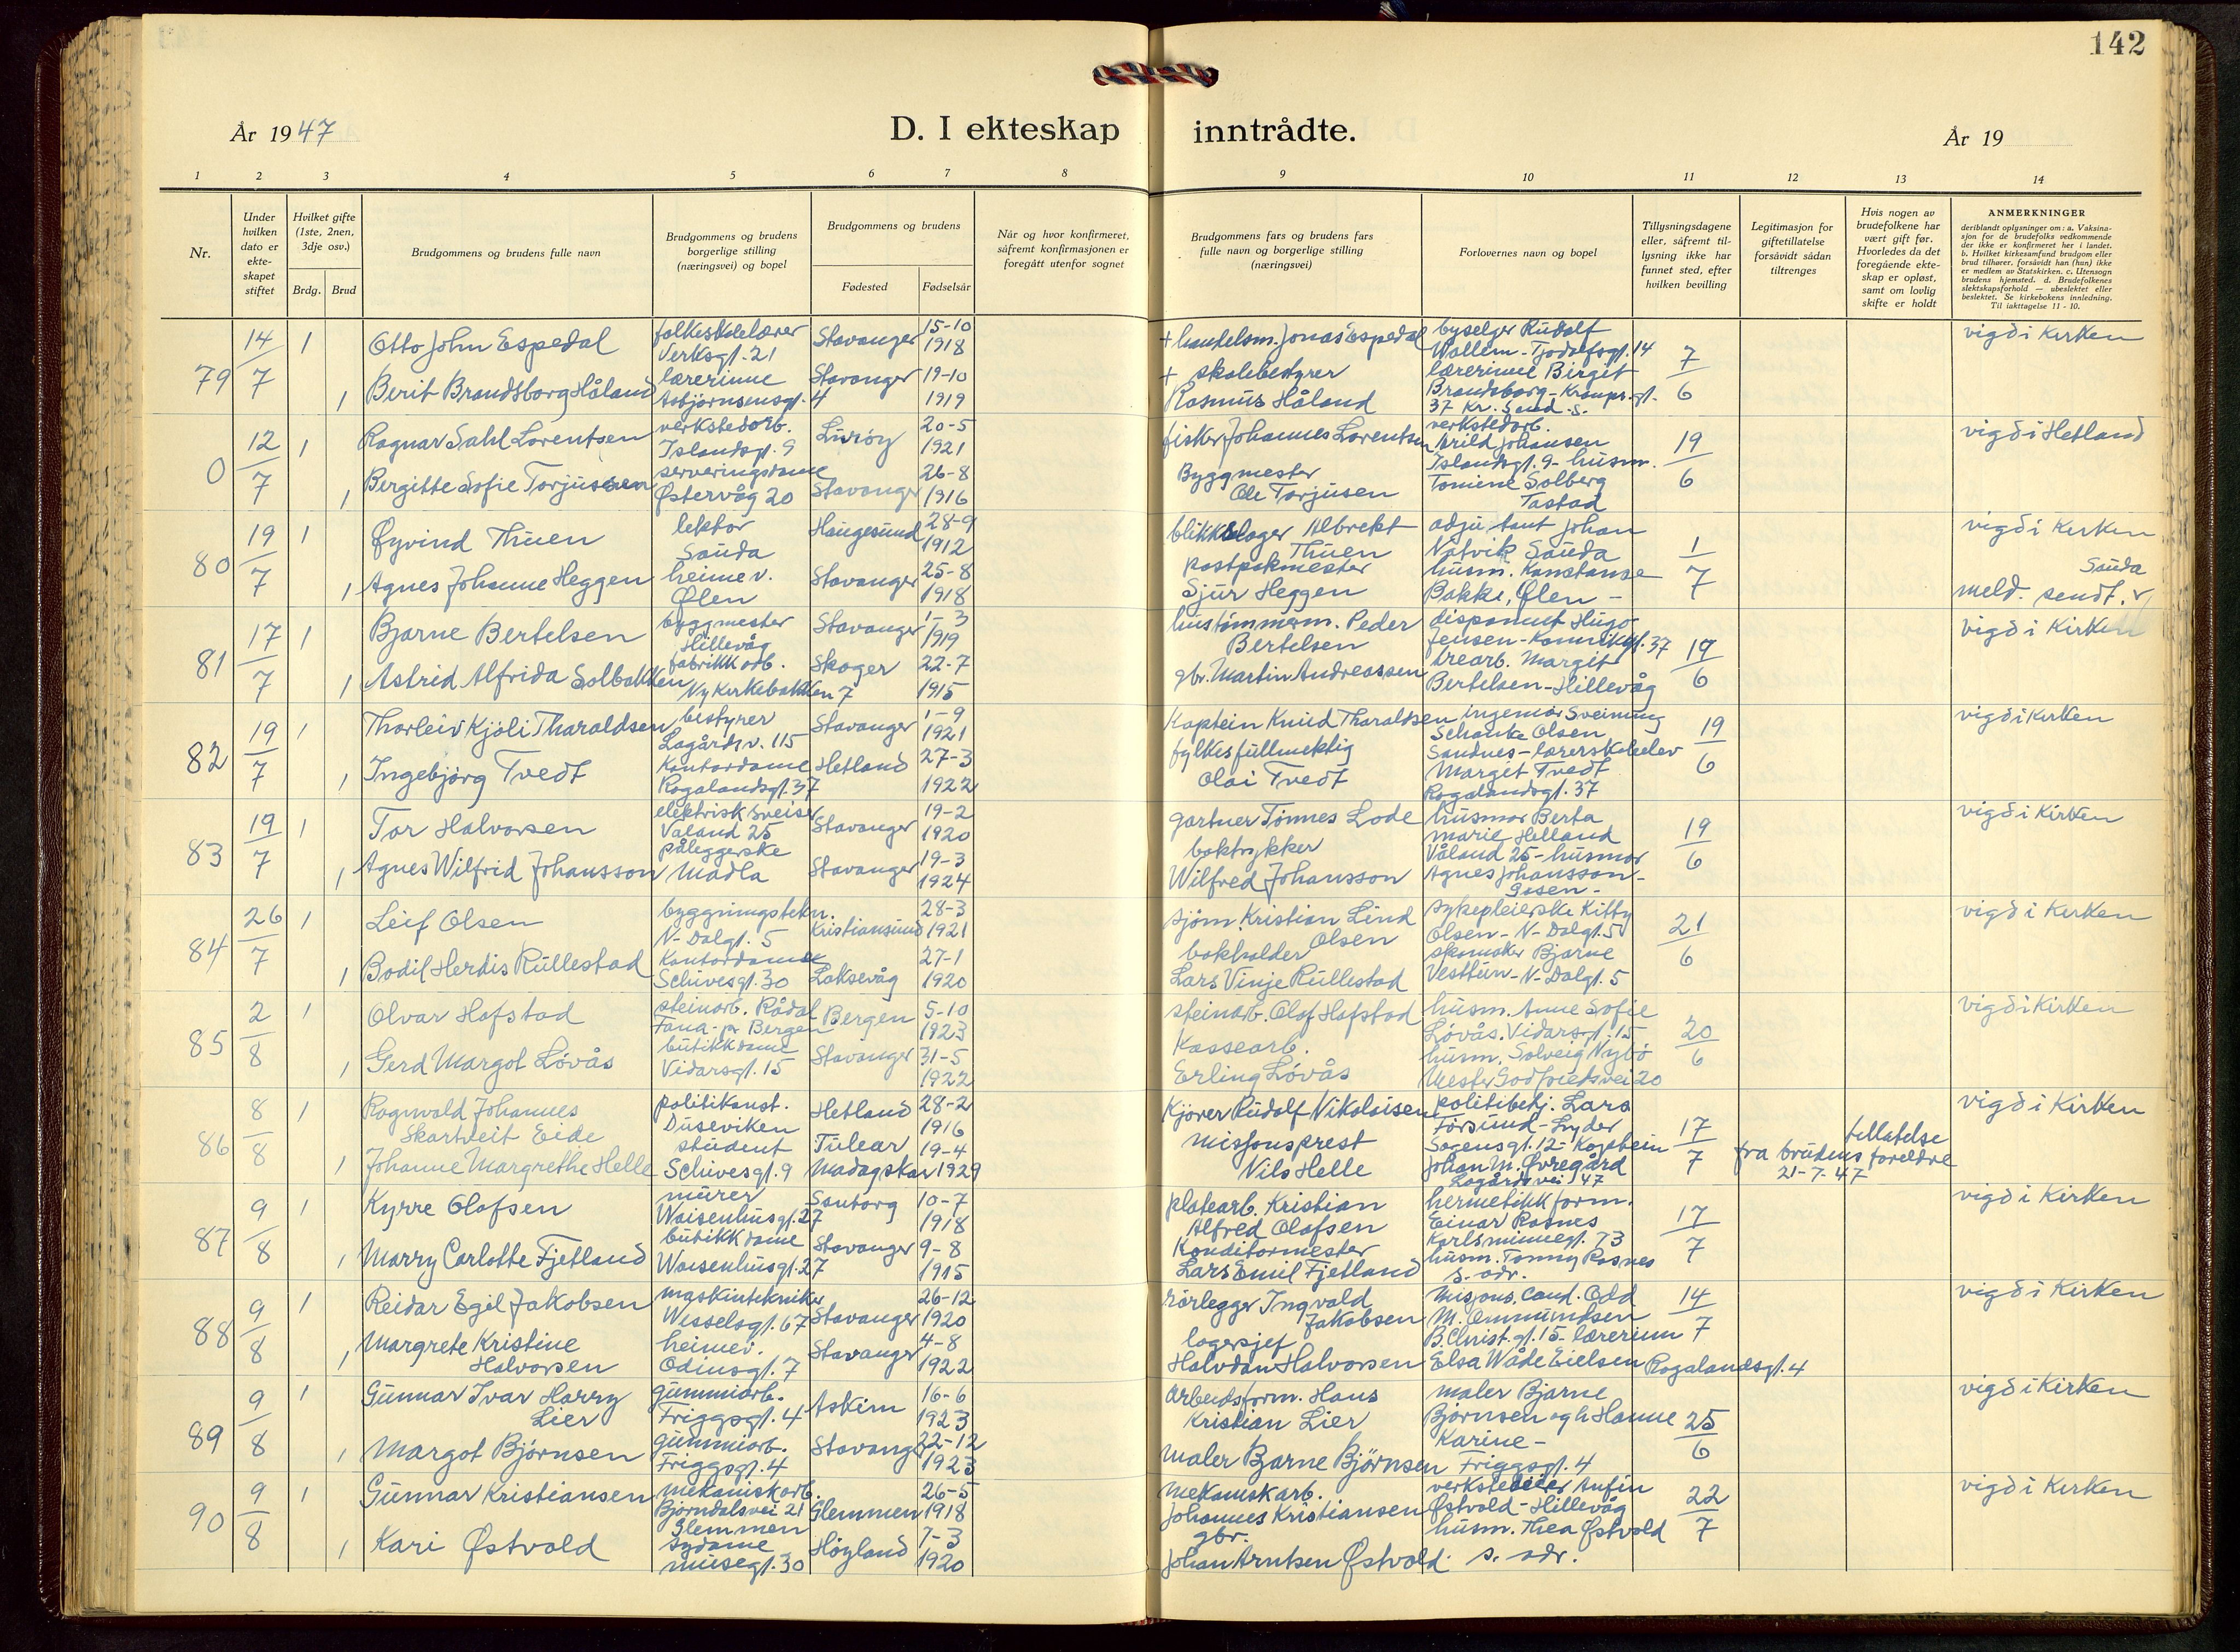 142
År 1947
D. I ekteskap inntrådte.
År 19
1 2 3 4 5 6 7 8 9 10 11 12 13 14
Nr.
Under hvilken dato er ekteskapet stiftet
Hvilket gifte (1ste, 2nen, 3dje osv.)
Brdg. Brud
Brudgommens og brudens fulle navn
Brudgommens og brudens borgerlige stilling (næringsvei) og bopel
Brudgommens og brudens
Fødested Fødselsår
Når og hvor konfirmeret, såfremt konfirmasjonen er foregått utenfor sognet
Brudgommens fars og brudens fars fulle navn og borgerlige stilling (næringsvei)
Forlovernes navn og bopel
Tillysningsdagene eller, såfremt tillysning ikke har funnet sted, efter hvilken bevilling
Legitimasjon for giftetillatelse forsåvidt sådan tiltrenges
Hvis nogen av brudefolkene har vært gift før. Hvorledes da det foregående ekteskap er opløst, samt om lovlig skifte er holdt
ANMERKNINGER
deriblandt oplysninger om: a. Vaksinasjon for de brudefolks vedkommende der ikke er konfirmeret her i landet. b. Hvilket kirkesamfund brudgom eller brud tilhører, forsåvidt han (hun) ikke er medlem av Statskirken. c. Utensogn brudens hjemsted. d. Brudefolkenes slektskapsforhold — ubeslektet eller beslektet. Se kirkebokens innledning. Til iakttagelse 11 - 10.
79 14/7 1 Otto John Espedal folkeskolelærer Verksgt. 21 Stavanger 15-10 1918 + handelsm. Jonas Espedal byselger Rudolf Wallem - Tjodolfsgt. 14 7/6 vigd i kirken
1 Berit Brandsborg Håland lærerinne Asbjørnsensgt. 4 Stavanger 19-10 1919 + skolebestyrer Rasmus Håland lærerinne Birgit Brandsborg - Kronpr.gt. 37 Kr. Sand. S.
0 12/7 1 Ragnar Dahl Lorentsen verkstedarb. Islandsgt. 9 Lurøy 20-5 1921 fisker Johannes Lorentsen verkstedarb. Arild Johansen Islandsgt. 9 - husm. 19/6 vigd i Hetland
1 Bergitte Sofie Torjussen serveringsdame Østervåg 20 Stavanger 26-8 1916 Byggmester Ole Torjusen Tomine Solberg Tastad
80 19/7 1 Øyvind Thuen lektor Sauda Haugesund 28-9 1912 blikkslager Albrekt Thuen adjutant Johan Natvik Sauda 1/7 vigd i kirken
1 Agnes Johanne Heggen heimev. Ølen Stavanger 25-8 1918 postpakmester Sjur Heggen husm. Konstanse Bakke, Ølen - Sauda meld. sendt. v
81 17/7 1 Bjarne Bertelsen byggmester Hillevåg Stavanger 1-3 1919 hustømmerm. Peder Bertelsen disponent Hugo Jensen - Kannikgt. 37 19/6 vigd i Kirken
1 Astrid Alfrida Solbakken fabrikkarb. Ny Kirkebakken 7 Skoger 22-7 1915 gbr. Martin Andreassen trearb. Margit Bertelsen - Hillevåg
82 19/7 1 Thorleiv Kjøli Tharaldsen bestyrer Lagårdsv. 115 Stavanger 1-9 1921 Kaptein Knud Tharaldsen ingeniør Sveinung Schanke Olsen Sandnes - 19/6 vigd i kirken
1 Ingebjørg Tvedt Kontordame Rogalandsgt. 37 Hetland 27-3 1922 fylkesfullmektig Olai Tvedt lærerskoleelev Margit Tvedt Rogalandsgt. 37
83 19/7 1 Tor Halvorsen elektrisk sveiser Våland 25 Stavanger 19-2 1920 gartner Tønnes Lode husmor Berta Marie Helland Våland 25 - husmor 19/6 vigd i kirken
1 Agnes Wilfrid Johansson påleggerske Madla Stavanger 19-3 1924 boktrykker Wilfred Johansson Agnes Johansson - Gosen -
84 26/7 1 Leif Olsen byggningstekn. N- Dalgt. 5 Kristiansund 28-3 1921 sjøm. Kristian Lind Olsen sykepleierske Kitty Olsen - N- Dalgt. 5 21/6 vigd i kirken
1 Bodil Herdis Rullestad Kontordame Schivesgt. 30 Laksevåg 27-1 1920 bokholder Lars Vinje Rullestad skomaker Bjarne Vesttun - N- Dalgt. 5
85 2/8 1 Olvar Hofstad steinarb. Rådal Fana - pr Bergen Bergen 5-10 1923 steinarb. Olaf Hofstad husm. Anne Sofie Løvås. Vidarsgt. 15 20/6 vigd i kirken
1 Gerd Margot Løvås butikkdame Vidarsgt. 15 Stavanger 31-5 1922 Kassearb. Erling Løvås husm. Solveig Nybø Mester Godfredsvei 20
86 8/8 1 Ragnvald Johannes Skartveit Eide politikonst. Duseviken Hetland 28-2 1916 Kjører Rudolf Nikolaisen politibetj. Lars Førsund - Lyder Sagensgt. 12 - 17/7 vigd i Kirken
1 Johanne Margrethe Helle student Schivesgt. 9 Tulear Madagskar 19-4 1929 misjonsprest Nils Helle Kaptein Johan M. Øvregård Lagårdsvei 47 tillatelse fra brudens foreldre 21-7-47
87 9/8 1 Kyrre Olafsen murer Waisenhusgt. 27 10-7 1918 platearb. Kristian Alfred Olafsen hermetikkform. Einar Rosnes Karlsminnegt. 73 17/7 vigd i kirken
1 Marry Carlotte Fjetland butikkdame Waisenhusgt. 27 Stavanger 9-8 1915 Konditormester Lars Emil Fjetland husm. Tonny Rosnes s. adr.
88 9/8 1 Reidar Egil Jakobsen maskintekniker Wesselsgt. 67 Stavanger 26-12 1920 rørlegger Ingvald Jakobsen Misjons. Cand. Odd M. Ommundsen B. Christ. gt. 15 - 14/7 vigd i kirken
1 Margrete Kristine Halvorsen heimev. Odinsgt. 7 Stavanger 4-8 1922 lagersjef Halvdan Halvorsen lærerinn Elsa Wåde Eielsen Rogalandsgt. 4
89 9/8 1 Gunnar Ivar Harry Lier gummiarb. Friggsgt. 4 Askim 16-6 1923 Arbeidsform. Hans Kristian Lier maler Bjarne Bjørnsen og h Hanne Karine - Friggsgt. 4 25/6 vigd i kirken
1 Margot Bjørnsen gummiarb. Friggsgt. 4 Stavanger 22-12 1923 maler Bjarne Bjørnsen
90 9/8 1 Gunnar Kristiansen mekaniskarb. Bjørndalsvei 21 Glemmen Glemmen 26-5 1918 mekaniskarb. Johannes Kristiansen Anfin Østvold - Hillevåg 22/7 vigd i kirken
1 Kari Østvold sydame musegt. 30 Høyland 7-3 1920 gbr. Johan Arntsen Østvold husm. Thea Østvold s. adr.